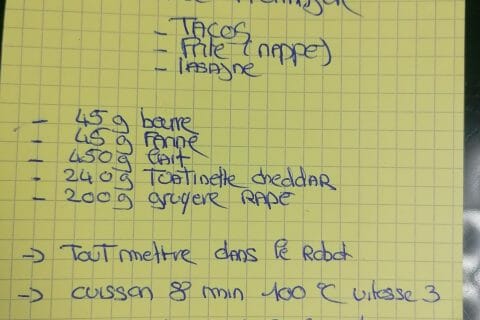 - TACOS
- Frite (nappe)
- lASAgne
- 45g beurre
- 45g FArine
- 450g lAit
- 240g ToAstinette cheddAR
- 200g gruyere RAPE
-> Tout mettre dans le Robot
-> cuisson 8 min 100°C vitesse 3